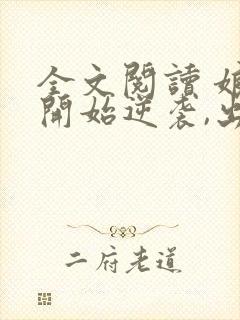 全文閱讀 娘
開始逆袭,出
二府老道